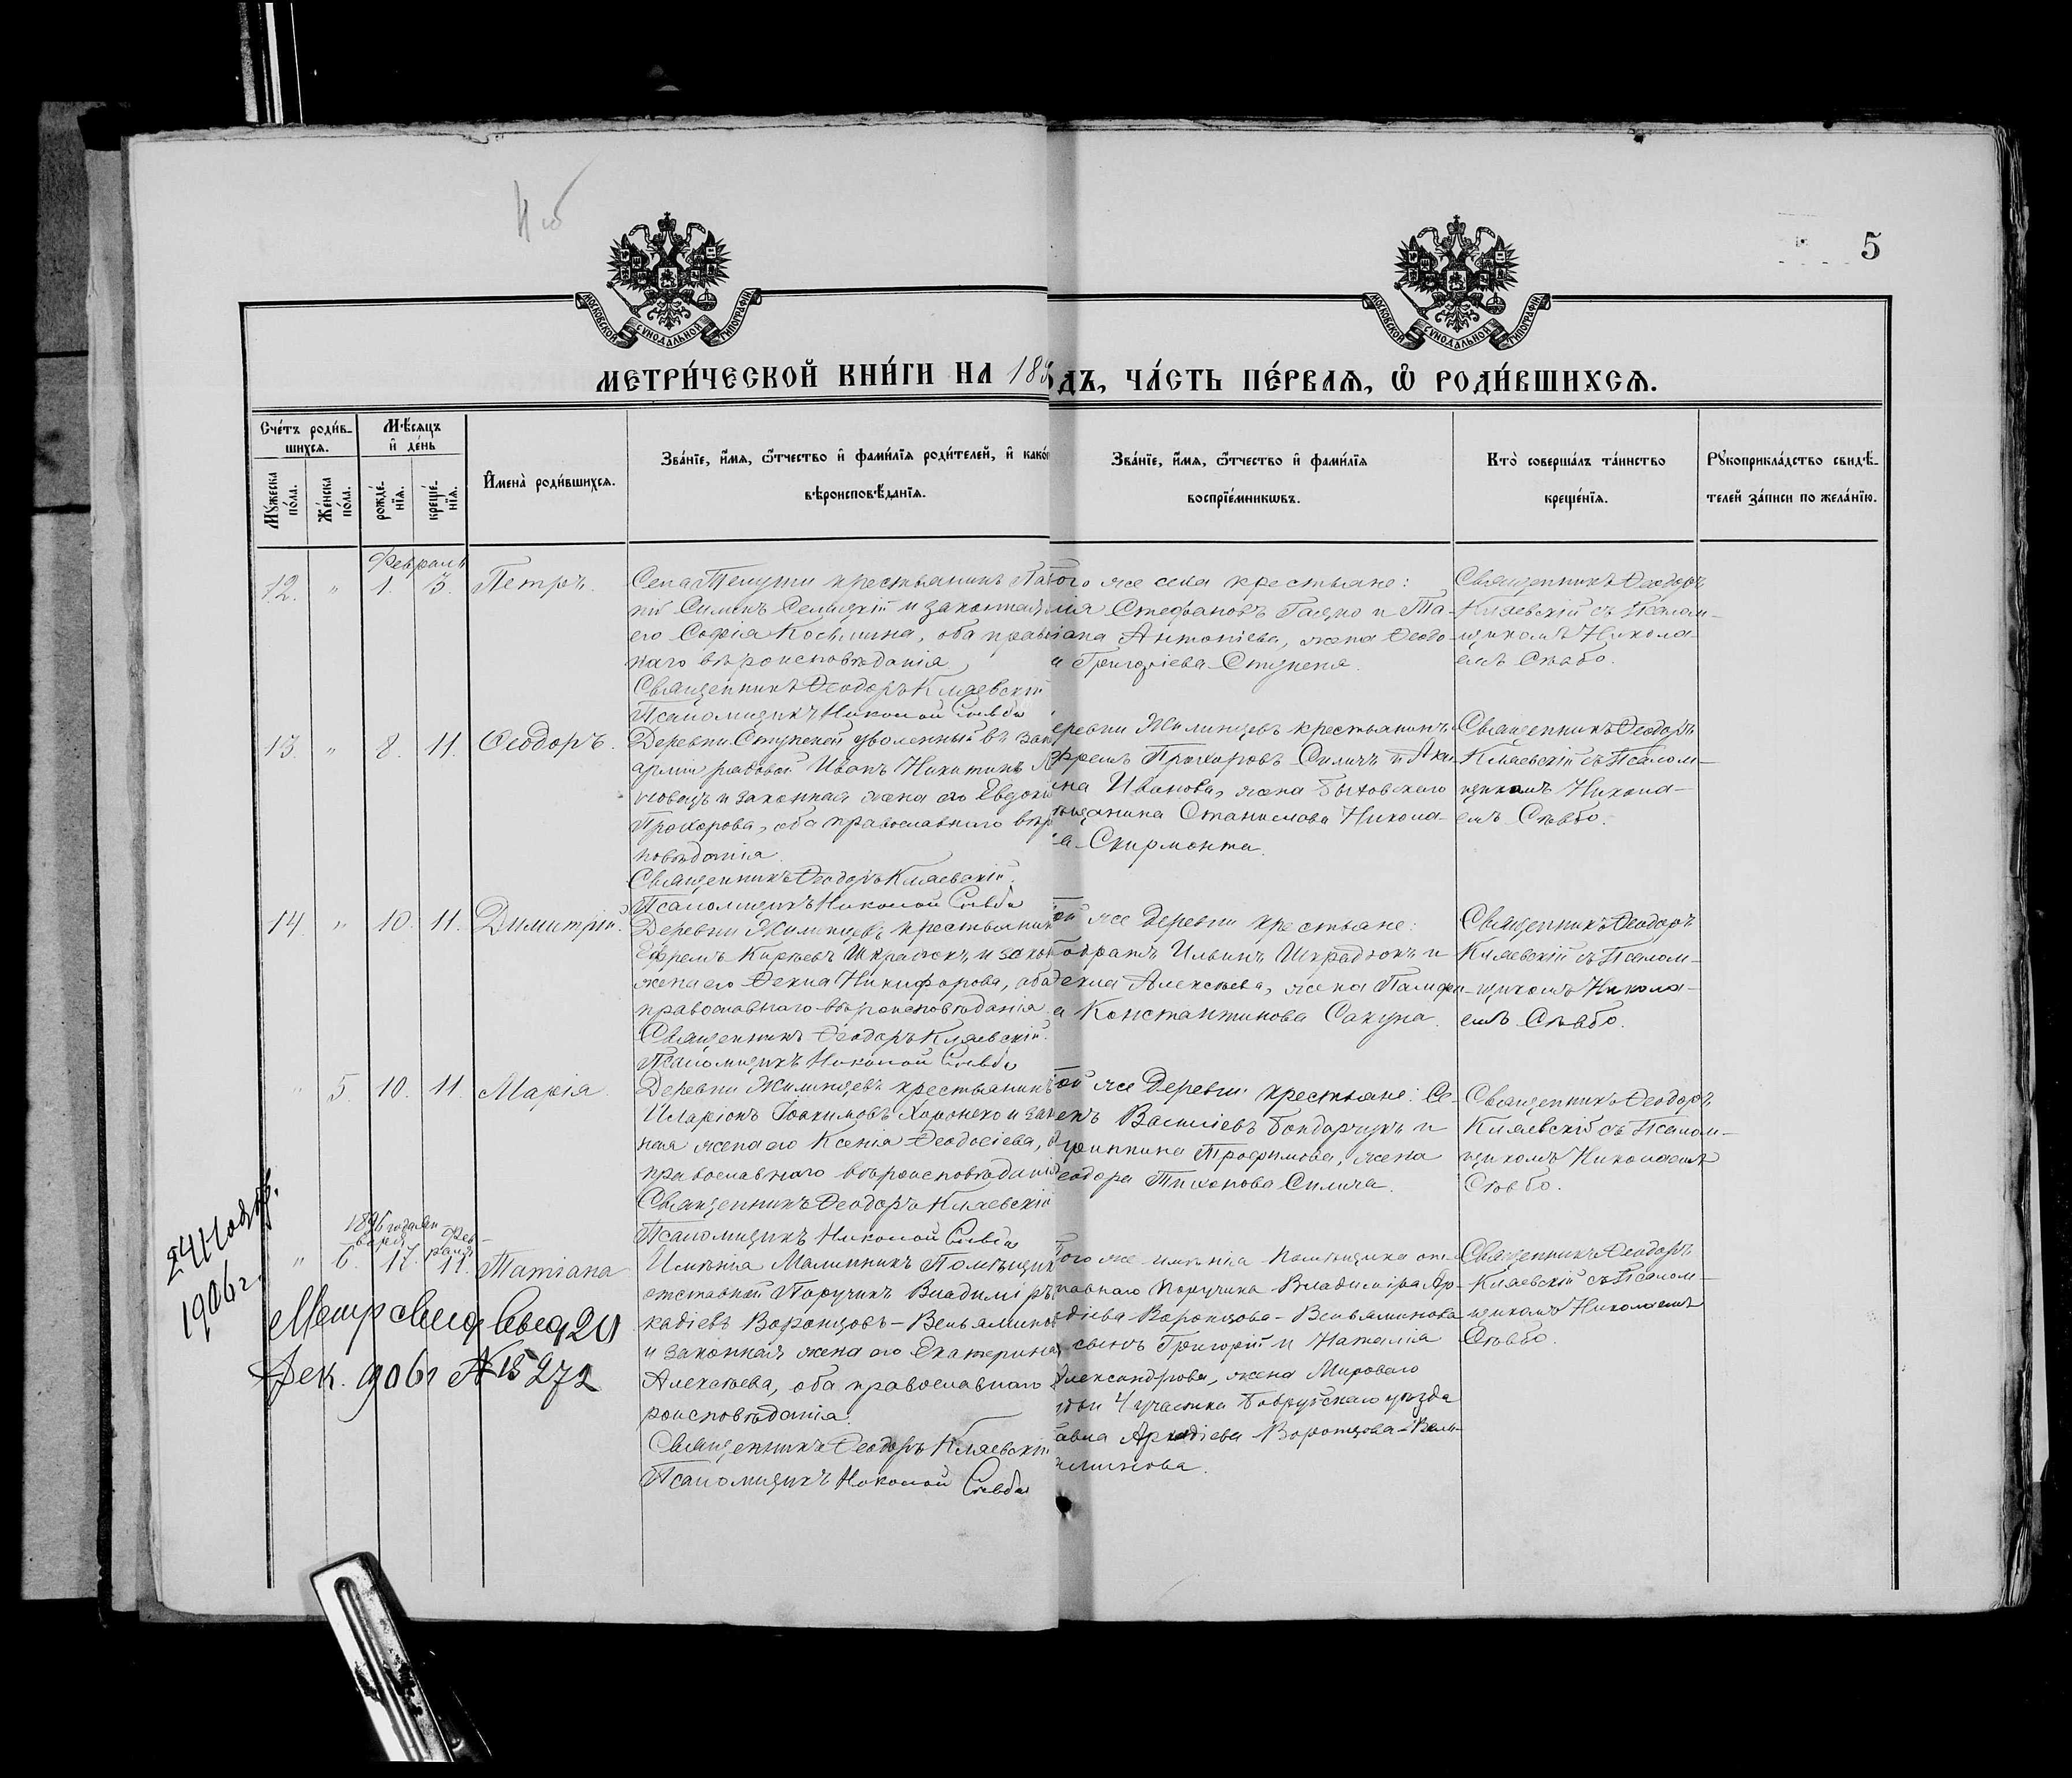 5
МОСКОВСКОЙ СѴНОДАЛЬНОЙ ТИПОГРАФІИ
МОСКОВСКОЙ СѴНОДАЛЬНОЙ ТИПОГРАФІИ
МЕТРИ́ЧЕСКОЙ КНИ́ГИ НА 189
ДЪ, ЧА́СТЬ ПЕ́РВАѦ, Ѡ҆ РОДИ́ВШИХСѦ.
Сче́тъ роди́в-
шихсѧ.
Мꙋ́жеска по́ла.
Же́нска по́ла.
Мѣ́сѧцъ
и҆ де́нь
рожде́-
нїѧ.
креще́-
нїѧ.
И҆мена̀ роди́вшихсѧ.
Зва́нїе, и҆́мѧ, ѻ҆́тчество и҆ фами́лїѧ роди́телей, и҆ како́
вѣроисповѣ́данїѧ.
Зва́нїе, и҆́мѧ, ѻ҆́тчество и҆ фами́лїѧ
воспрїе́мникѡвъ.
Кто̀ соверша́лъ та́инство
креще́нїѧ.
Рꙋкоприкла́дство свидѣ́-
телей за́писи по жела́нїю.
Февраль
12. " 1. 3. Петръ.
Села Телуши крестьянинъ
Силинъ Селицкій и законная
его Софія Косьмина, оба право
наго вѣроисповѣданія
Священникъ Ѳеодоръ Кляевскій
Псаломщикъ Николай Сѣвбо
того же села крестьяне:
Стефановъ Гацко и Та-
іана Антоніева, жена Ѳеодо-
а Григоріева Ступеня.
Священникъ Ѳеодоръ
Кляевскій съ Псалом-
щикомъ Никола-
емъ Сѣвбо.
13. " 8. 11. Ѳеодоръ.
Деревни Ступеней уволенный въ зап
арміи рядовой Иванъ Никитинъ
и законная жена его Евдокі
Прохорова, оба православнаго вѣр
повѣданія.
Священникъ Ѳеодоръ Кляевскій.
Псаломщикъ Николай Сѣвбо
еревни Жилинцевъ крестьянинъ
фремъ Прохоровъ Силичъ и Аки-
ина Иванова, жена Быховскаго
ѣщанина Станислава Никола-
а Скирмонта.
Священникъ Ѳеодоръ
Кляевскій съ Псалом-
щикомъ Никола-
емъ Сѣвбо.
14. " 10. 11. Димитрій.
Деревни Жилинцевъ крестьянинъ
Ефремъ и закон
жена его Ѳекла Никифорова, оба
православнаго вѣроисповѣданія.
Священникъ Ѳеодоръ Кляевскій.
Псаломщикъ Николай Сѣвбо
той же деревни крестьяне:
Ильинъ Шкрадюкъ и
екла Алексѣева, жена
а Константинова Сакуна.
Священникъ Ѳеодоръ
Кляевскій съ Псалом-
щикомъ Никола-
емъ Сѣвбо.
" 5. 10. 11. Марія.
Деревни Жилинцевъ крестьянинъ
Иларіонъ Іоакимовъ Хоронеко и зак
ная жена его Ксенія Ѳеодосіева,
православнаго вѣроисповѣданія
Священникъ Ѳеодоръ Кляевскій
Псаломщикъ Николай Сѣвбо
той же деревни крестьяне: Се-
енъ Василіевъ Бондарчукъ и
гриппина Трофимова, жена
еодора Тихонова Силича.
Священникъ Ѳеодоръ
Кляевскій съ Псалом-
щикомъ Николаемъ
Сѣвбо.
24 Ноябр.
1906 г.
1896 года Ян-
варя
Фев-
раля
" 6. 17. 11. Татіана
Имѣнія Малинникъ Помѣщикъ
отставной Поручикъ Владиміръ
кадіевъ Воронцовъ-Вельяминов
и законная жена его Екатерина
Алексѣева, оба православнаго
роисповѣданія.
Священникъ Ѳеодоръ Кляевскій
Псаломщикъ Николай Сѣвбо
того же имѣнія Помѣщика от-
тавнаго Поручика Владиміра Ар-
адіева Воронцова-Вельяминова
сынъ Григорій и Наталія
Александрова, жена Мироваго
удьи 4 участка Бобруйскаго уѣзда
авла Аркадіева Воронцова-Вель-
яминова.
Священникъ Ѳеодоръ
Кляевскій съ Псалом-
щикомъ Николаемъ
Сѣвбо.
Метр 20
Дек. 906 г № 15272